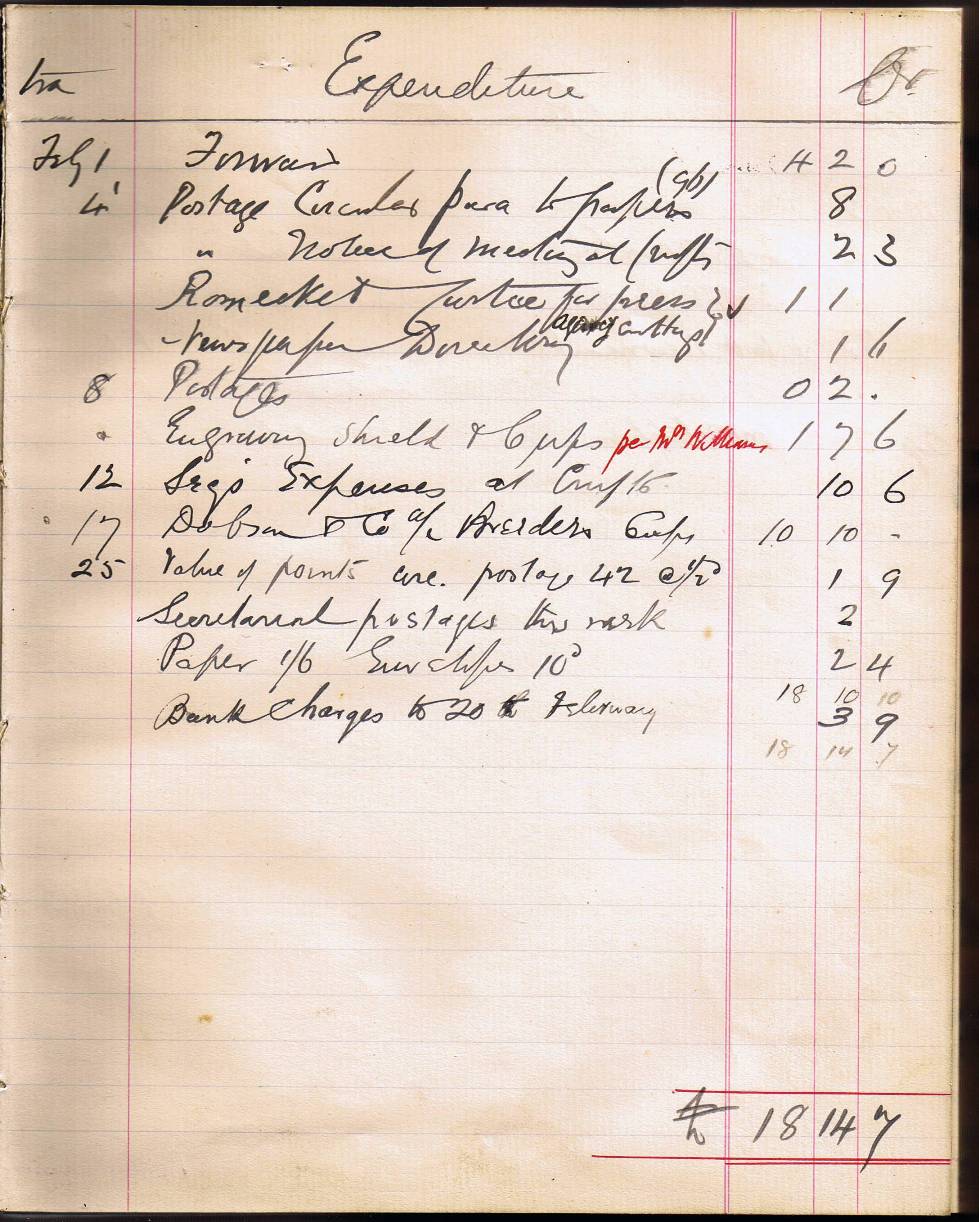 Expenditure
Feby 1 Forward 4 2 0
4 Postage Circular para to papers (96) 8
" Notices of meeting at Crufts 2 3
Romeike & Curtice for press 1 1
agency cuttings
Newspaper Directory 1 6
8 Postages 0 2 .
" Engraving Shield & Cups per Mr Williams 1 7 6
12 Sec's Expenses at Crufts 10 6
17 Dobson & Co a/c Breeders Cups 10 10 -
25 Value of points circ. postage 42 @ ½d 1 9
Secretarial postages this week 2
Paper 1/6 Envelopes 10d 2 4
18 10 10
Bank Charges to 20th February 3 9
18 14 7
18 14 7